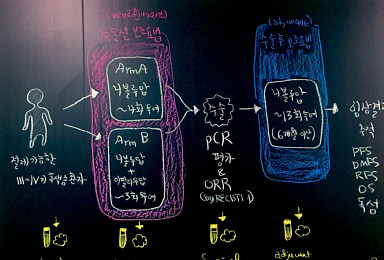 (neoadjuvant)
수술전 보조요법
Arm A
니볼루맙
~4회 투여
Arm B
니볼루맙
+
이필리무맙
~3회 투여
절제 가능한
III~IV기 흑색종 환자
수술
pCR
평가
&
ORR
(by RECIST 1.1)
(adjuvant)
수술후 보조요법
니볼루맙
~13회 투여
(6개월 이상)
임상결과
추적
PFS
DMFS
RFS
OS
독성
adjuvant